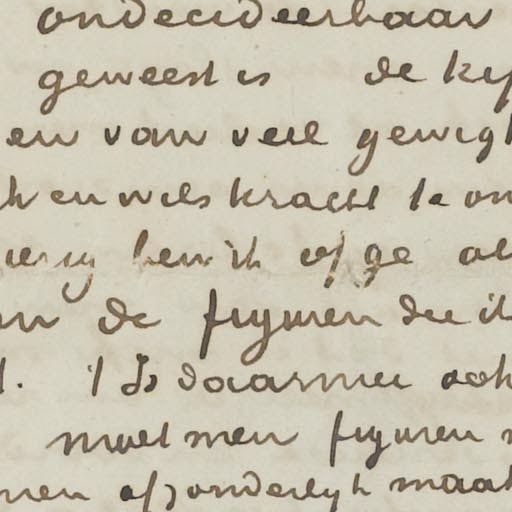 ondecideerbaar
geweest is de ky
en van veel gewigt
h en wilskracht te on
ben ik of ge al
de figuren die ik
. 't Is daarmee ook
moet men figuren
men afzonderlijk maak